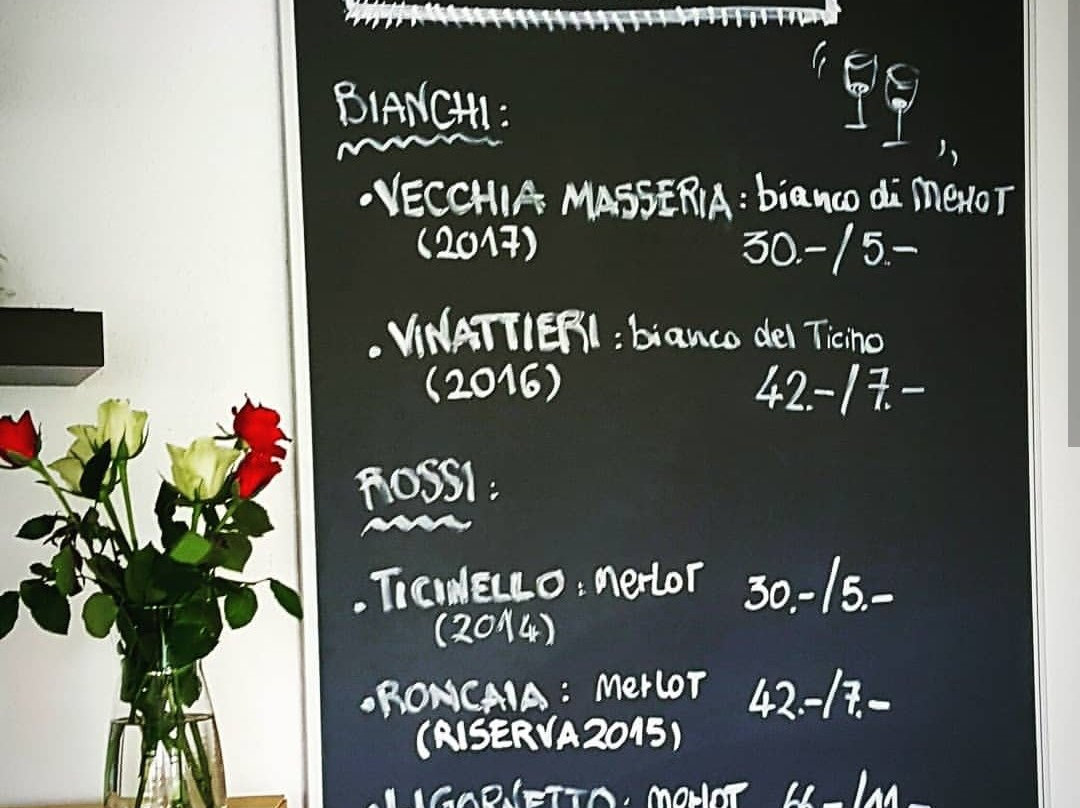 BIANCHI:
• VECCHIA MASSERIA: bianco di MERLOT
(2017) 30.-/5.-
• VINATTIERI: bianco del Ticino
(2016) 42.-/7.-
ROSSI:
• TICINELLO: MERLOT 30.-/5.-
(2014)
• RONCAIA: MERLOT 42.-/7.-
(RISERVA 2015)
• LIGORNETTO: MERLOT 66.-/11.-